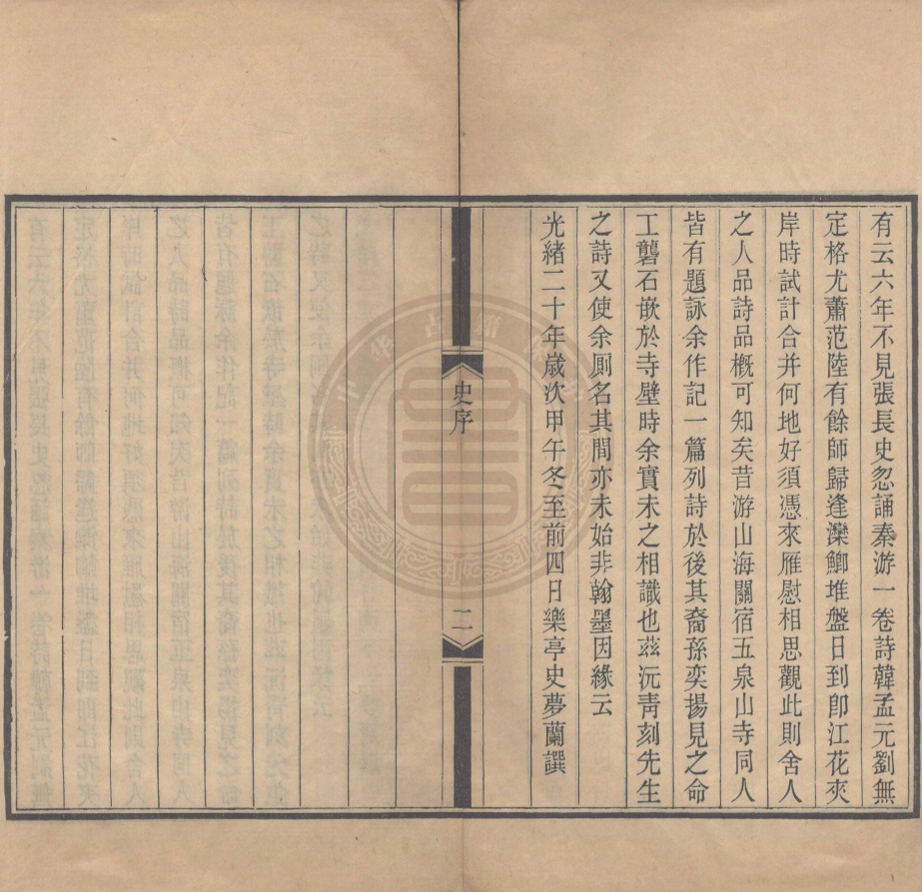 有云六年不見張長史忽誦秦游一卷詩韓孟元劉無
定格尤蕭范陸有餘師歸逢灤鯽堆盤日到卽江花夾
岸時試計合并何地好須憑來雁慰相思觀此則舍人
之人品詩品概可知矣昔游山海關宿五泉山寺同人
皆有題詠余作記一篇列詩於後其裔孫奕揚見之命
工礱石嵌於寺壁時余實未之相識也茲沅靑刻先生
之詩又使余厠名其間亦未始非翰墨因緣云
光緒二十年歲次甲午冬至前四日樂亭史夢蘭譔
史序
二